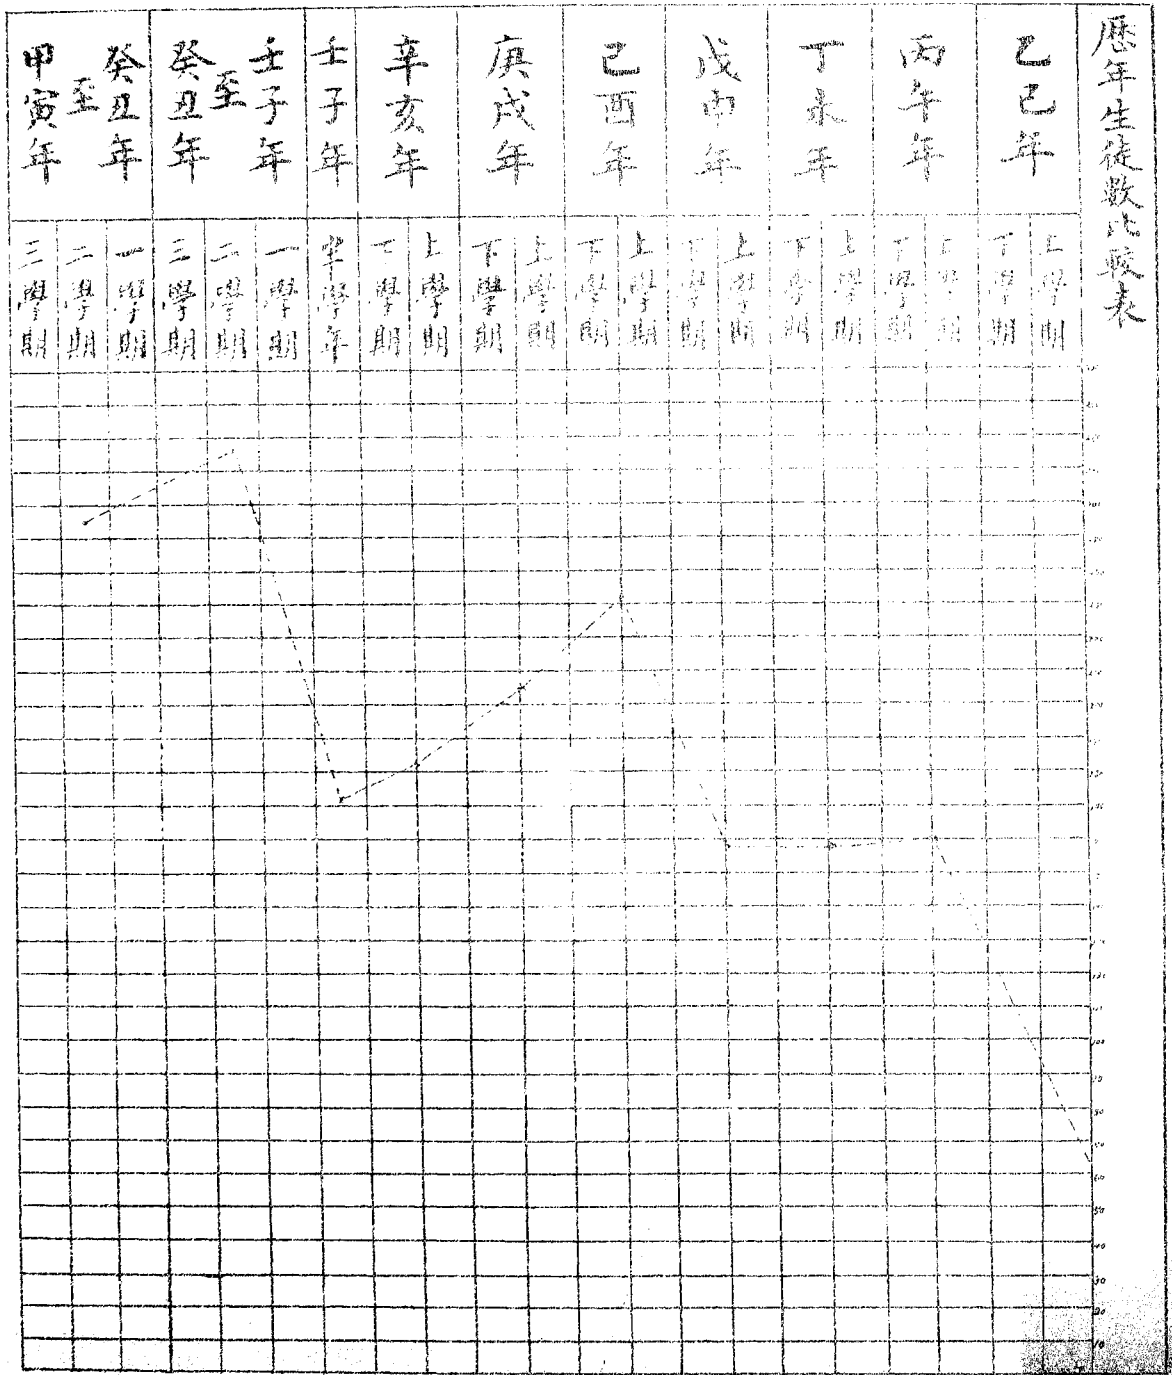 歷年生徒數比較表
乙巳年
丙午年
丁未年
戊申年
己酉年
庚戌年
辛亥年
壬子年
壬子年至癸丑年
癸丑年至甲寅年
上學期
下學期
上學期
下學期
上學期
下學期
上學期
下學期
上學期
下學期
上學期
下學期
上學期
下學期
半學年
一學期
二學期
三學期
一學期
二學期
三學期
100
90
80
60
50
40
30
20
10